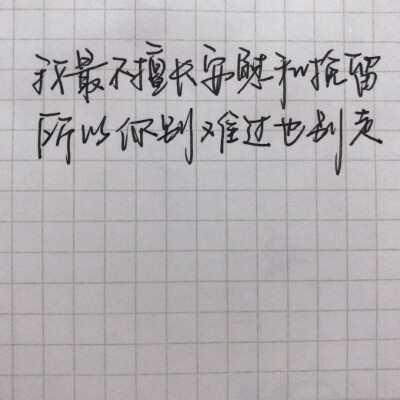 我最不擅长安慰和挽留
所以你别难过也别走